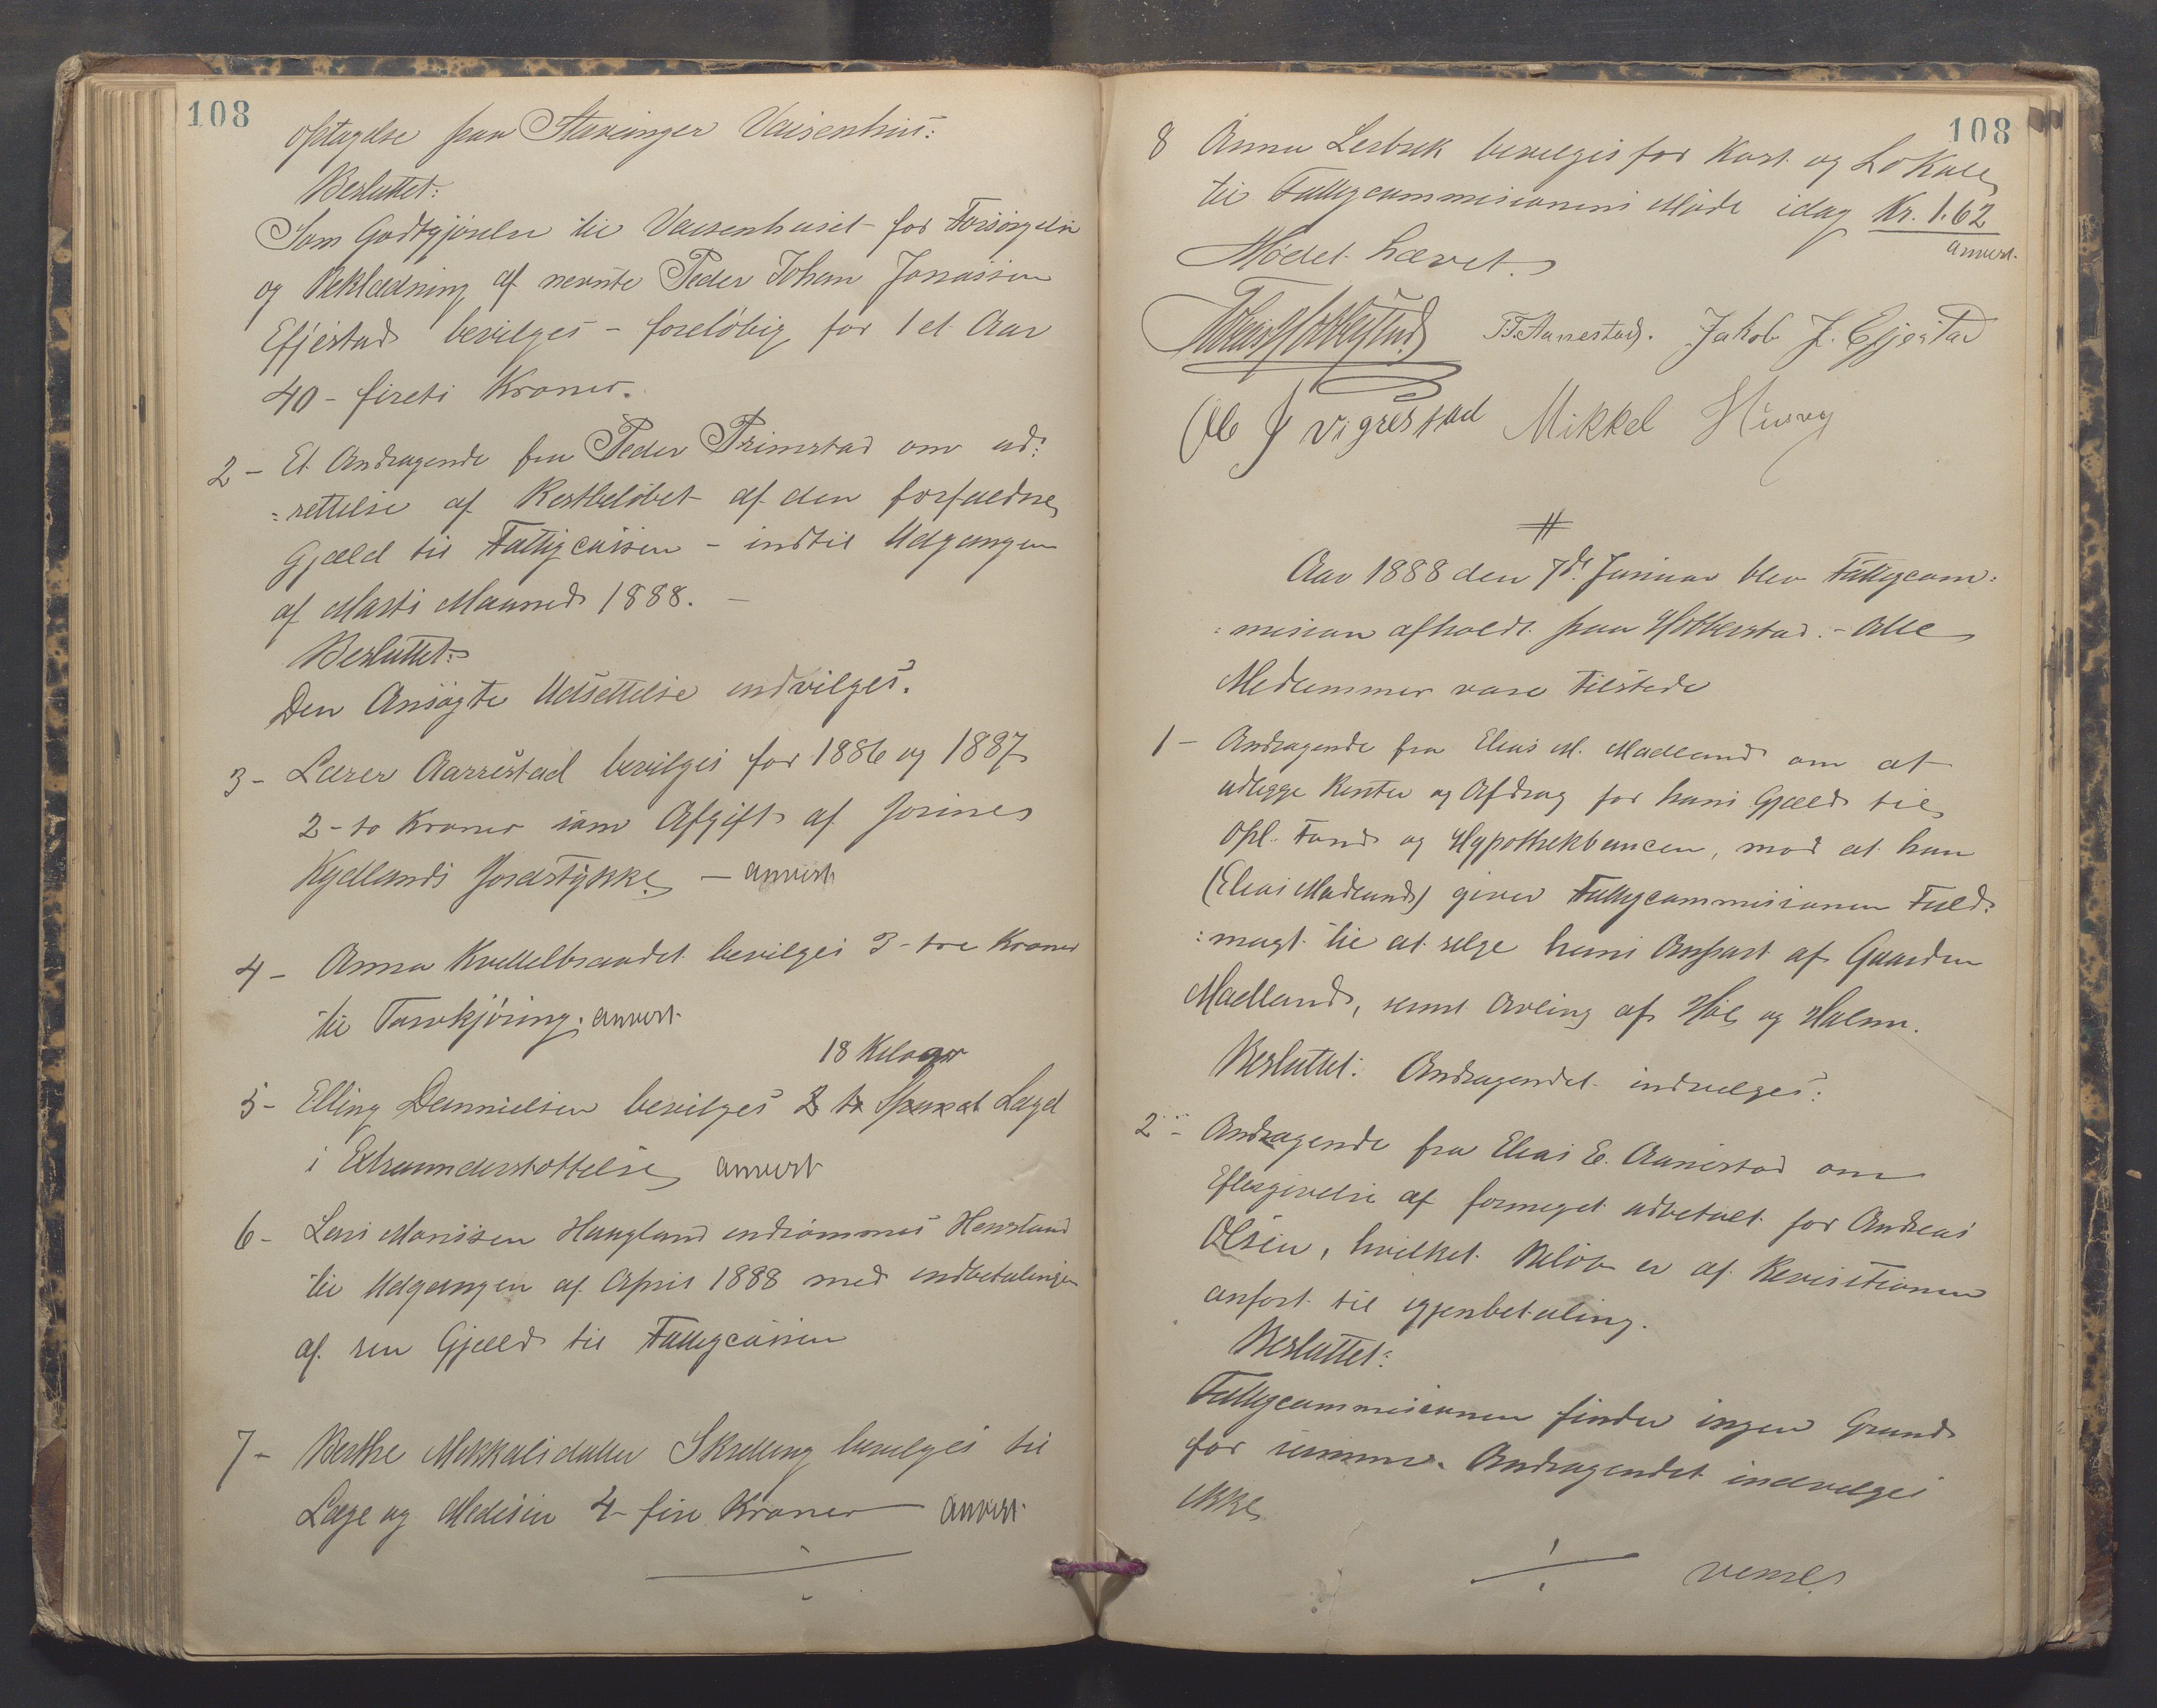 108
Optagelse paa Stavanger Vaisenhus:
Besluttet:
Som Godtgjörelse til Vaisenhuset for Forsörgelse
og Beklædning af nevnte Peder Johan Jonassen
Efjestad bevilges - foreløbig for 1 et Aar
40 - fireti Kroner.
2 - Et Andragende fra Peder Primstad om ud=
=settelse af Restbeløbet af den forfaldne
Gjæld til Fattigcassen - indtil Udgangen
af Marts Maaned 1888. -
Besluttet:
Den Ansøgte Udsettelse indvilges.
3 - Lærer Aarrestad bevilges for 1886 og 1887
2 - to Kroner som Afgift af Jorines
Kydlands Jordstykke - anvist
4 - Anna Kvellelbrandet bevilges 3 - tre Kroner
til Torvkjöring. anvist
18 Kilogr
5 - Elling Dannielsen bevilges 2 to Spand Lagd
i Extraunderstøttelse anvist
6 - Lars Monssen Haugland indrømmes Henstand
til Udgangen af April 1888 med indbetalingen
af sin Gjæld til Fattigcassen
7 - Berthe Mikkalsdatter Skretting bevilges til
Læge og Medisin 4 - fire Kroner anvist
108
8 Anna Lerbrek bevilges for Kost og Lokale
til Fattigcommisionens Møde idag Kr. 1.62
anvist.
Mødet hævet.
T. T. Aanestad. Jakob J. Efjestad
Ole J Vigrestad Mikkel
#
Aar 1888 den 7de Januar blev Fattigcom=
=mision afholdt paa Hobberstad. - Alle
Medlemmer vare tilstede
1 - Andragende fra Elias M. Madland om at
udlegge Renter og Afdrag for hans Gjæld til
Opl. Fond og Hypothekbancen, mod at han
(Elias Madland) giver Fattigcommisionen Fuld=
=magt til at selge hans Anpart af Gaarden
Madland, samt Avling af Høe og Halm.
Besluttet: Andragendet indvilges.
2 - Andragende fra Elias E. Aanestad om
Eftergivelse af formeget udbetalt for Andreas
Olsen, hvilket Beløb er af Revisitionen
anført til igjenbetaling.
Besluttet:
Fattigcommisionen finder ingen Grund
for samme. Andragendet indvilges
ikke
vend.